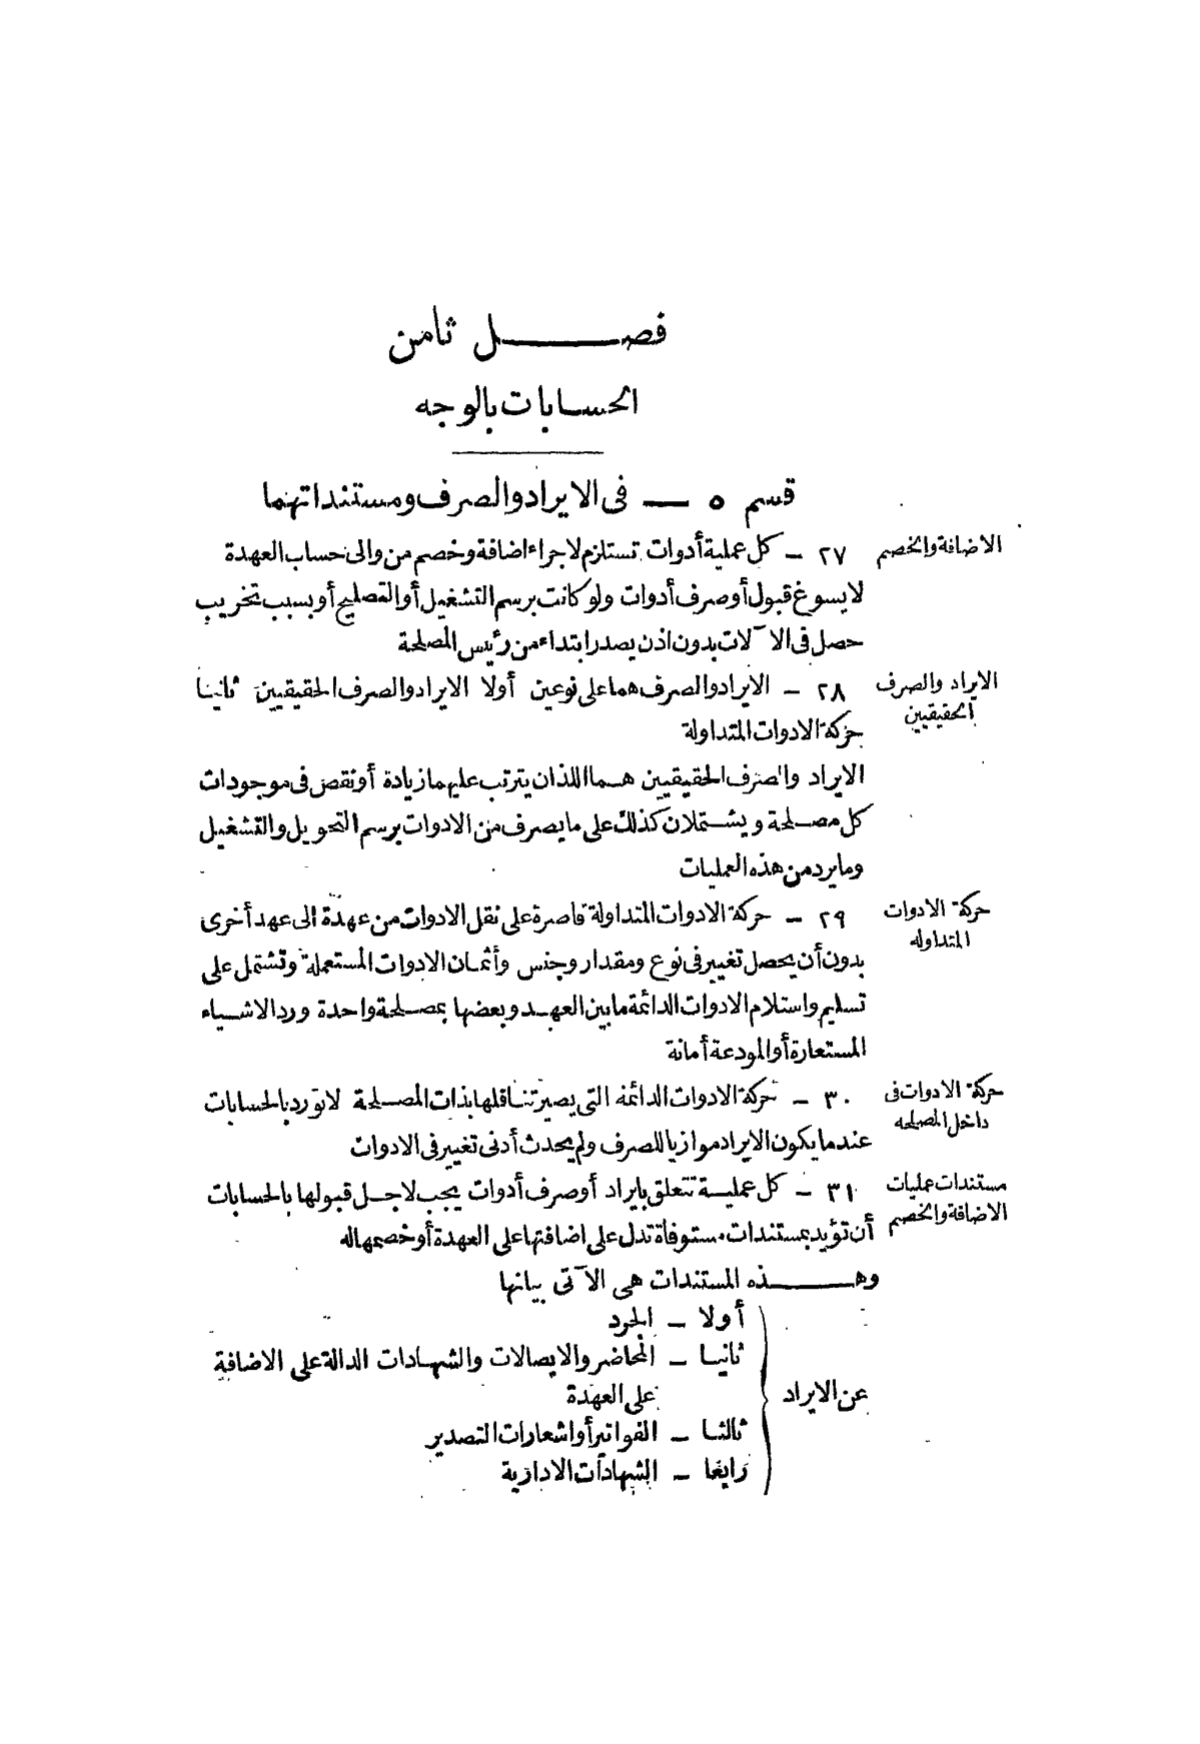 فصل ثامن
الحسابات بالوجه
قسم ٥ — فى الايراد والصرف ومستنداتهما
الاضافة والخصم
٢٧ — كل عملية أدوات تستلزم لاجراء اضافة وخصم من والى حساب العهدة
لا يسوغ قبول أو صرف أدوات ولو كانت برسم التشغيل أو التصليح أو بسبب تخريب
حصل فى الآلات بدون اذن يصدر ابتداء من رئيس المصلحة
الايراد والصرف
الحقيقيين
٢٨ — الايراد والصرف هما على نوعين أولا الايراد والصرف الحقيقيين ثانيا
حركة الادوات المتداولة
الايراد والصرف الحقيقيين هما اللذان يترتب عليهما زيادة أو نقص فى موجودات
كل مصلحة ويشتملان كذلك على ما يصرف من الادوات برسم التحويل والتشغيل
وما يرد من هذه العمليات
حركة الادوات
المتداوله
٢٩ — حركة الادوات المتداولة قاصرة على نقل الادوات من عهدة الى عهد أخرى
بدون أن يحصل تغيير فى نوع ومقدار وجنس وأثمان الادوات المستعملة وتشتمل على
تسليم واستلام الادوات الدائمة ما بين العهد وبعضها بمصلحة واحدة ورد الاشياء
المستعارة أو المودعة أمانة
حركة الادوات فى
داخل المصلحه
٣٠ — حركة الادوات الدائمه التى يصير تناقلها بذات المصلحة لا تورد بالحسابات
عندما يكون الايراد موازيا للصرف ولم يحدث أدنى تغيير فى الادوات
مستندات عمليات
الاضافة والخصم
٣١ — كل عملية تتعلق بايراد أو صرف أدوات يجب لاجل قبولها بالحسابات
أن تؤيد بمستندات مستوفاة تدل على اضافتها على العهدة أو خصمها له
وهذه المستندات هى الآتى بيانها
عن الايراد
أولا — الجرد
ثانيا — المحاضر والايصالات والشهادات الدالة على الاضافة
على العهدة
ثالثا — الفواتير أو اشعارات التصدير
رابعا — الشهادات الادارية